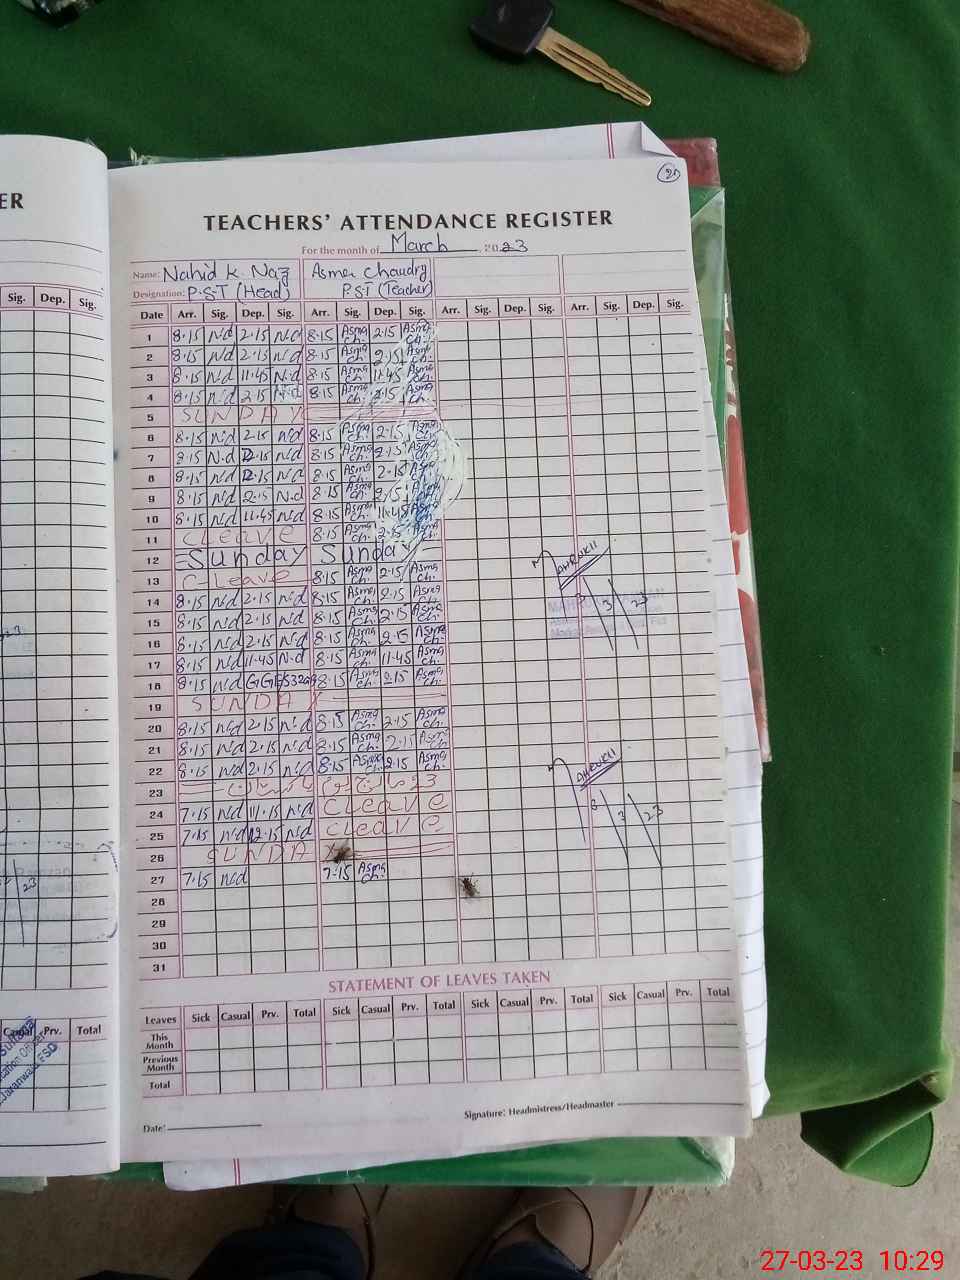 ER
21
TEACHERS' ATTENDANCE REGISTER
For the month of March, 2023
Name: Nahid K. Naz Asma Chaudry
Designation: P.S.T (Head) P.S.T (Teacher)
Sig. Dep. Sig.
Date Arr. Sig. Dep. Sig. Arr. Sig. Dep. Sig. Arr. Sig. Dep. Sig. Arr. Sig. Dep. Sig.
1 8.15 N.d 2.15 N.d 8.15 Asma Ch. 2.15 Asma
2 8.15 N.d 2.15 N.d 8.15 Asma Ch. 2.15 Asma
3 8.15 N.d 11.45 N.d 8.15 Asma Ch. 11.45 Asma Ch.
4 8.15 N.d 2.15 N.d 8.15 Asma Ch. 2.15 Asma Ch.
5 SUNDAY
6 8.15 N.d 2.15 N.d 8.15 Asma Ch. 2.15 Asma
7 8.15 N.d 2.15 N.d 8.15 Asma Ch. 2.15
8 8.15 N.d 2.15 N.d 8.15 Asma Ch. 2.15
9 8.15 N.d 2.15 N.d 8.15 Asma Ch. 2.15
10 8.15 N.d 11.45 N.d 8.15 Asma Ch. 11.45
11 C Leave 8.15 Asma Ch. 2.15
12 Sunday Sunday
13 C-Leave 8.15 Asma Ch. 2.15 Asma Ch.
14 8.15 N.d 2.15 N.d 8.15 Asma Ch. 2.15 Asma Ch.
15 8.15 N.d 2.15 N.d 8.15 Asma Ch. 2.15 Asma Ch.
16 8.15 N.d 2.15 N.d 8.15 Asma Ch. 2.15 Asma Ch.
17 8.15 N.d 11.45 N.d 8.15 Asma Ch. 11.45 Asma Ch.
18 8.15 N.d 8.15 Asma Ch. 2.15 Asma Ch.
19 SUNDAY
20 8.15 N.d 2.15 N.d 8.15 Asma Ch. 2.15 Asma Ch.
21 8.15 N.d 2.15 N.d 8.15 Asma Ch. 2.15 Asma Ch.
22 8.15 N.d 2.15 N.d 8.15 Asma Ch. 2.15 Asma Ch.
23 23 مارچ یوم پاکستان
24 7.15 N.d 11.15 N.d C Leave
25 7.15 N.d 12.15 N.d C Leave
26 SUNDAY
27 7.15 N.d 7.15 Asma Ch.
28
29
30
31
3 23
3 23
STATEMENT OF LEAVES TAKEN
Leaves Sick Casual Prv. Total Sick Casual Prv. Total Sick Casual Prv. Total Sick Casual Prv. Total
This Month
Previous Month
Total
Casual Prv. Total
Date:
Signature: Headmistress/Headmaster
27-03-23 10:29